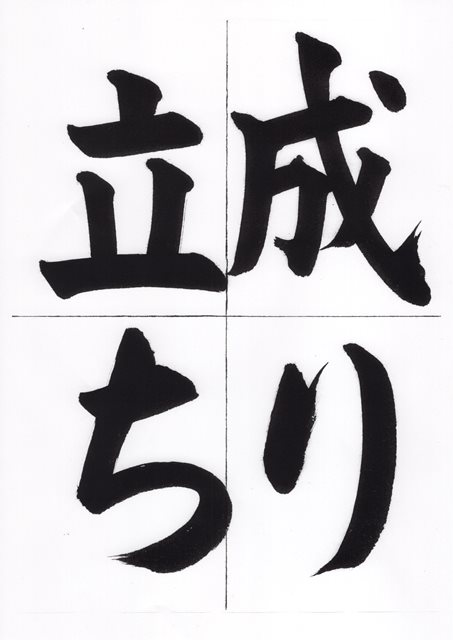 成り
立ち